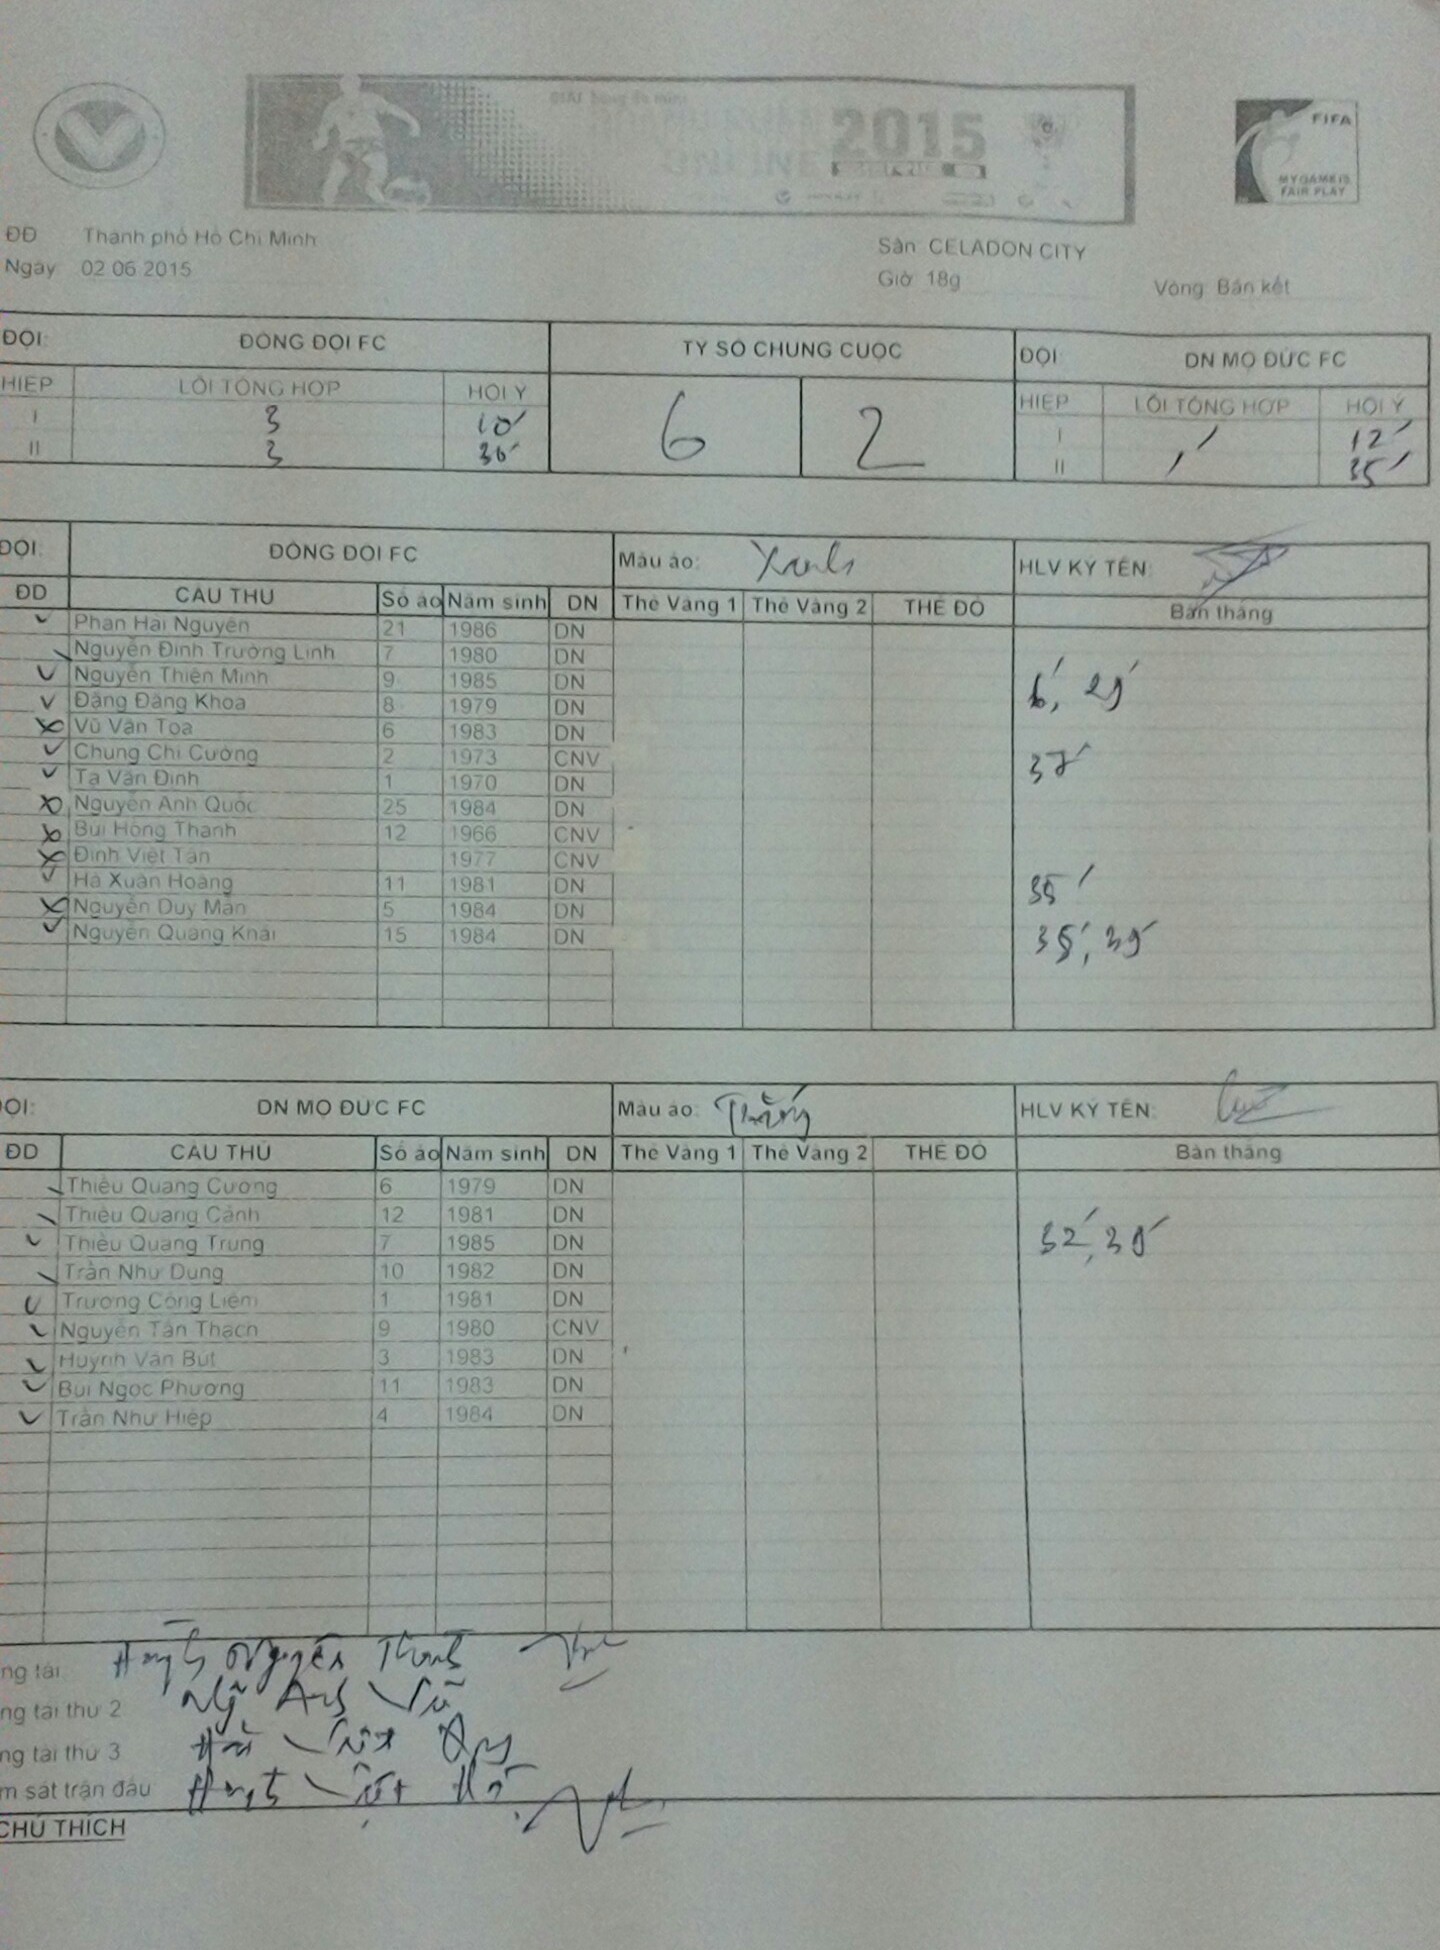 2015
FIFA
MY GAME IS
FAIR PLAY
ĐĐ Thành phố Hồ Chí Minh
Sân CELADON CITY
Ngày 02 06 2015
Giờ 18g
Vòng Bán kết
ĐỘI: ĐỒNG ĐỘI FC TỶ SỐ CHUNG CUỘC ĐỘI DN MỘ ĐỨC FC
HIỆP LỖI TỔNG HỢP HỘI Ý 6 2 HIỆP LỖI TỔNG HỢP HỘI Ý
I 3 10' I 12'
II 3 30' II 35'
ĐỘI: ĐỒNG ĐỘI FC Màu áo: Xanh HLV KÝ TÊN:
ĐD CẦU THỦ Số áo Năm sinh DN Thẻ Vàng 1 Thẻ Vàng 2 THẺ ĐỎ Bàn thắng
Phan Hải Nguyên 21 1986 DN
Nguyễn Đình Trường Linh 7 1980 DN
Nguyễn Thiện Minh 9 1985 DN
Đặng Đăng Khoa 8 1979 DN
Vũ Văn Tọa 6 1983 DN
Chung Chí Cường 2 1973 CNV
Tạ Văn Định 1 1970 DN
Nguyễn Anh Quốc 25 1984 DN
Bùi Hồng Thanh 12 1966 CNV
Đinh Viết Tân 1977 CNV
Hà Xuân Hoàng 11 1981 DN 35'
Nguyễn Duy Mẫn 5 1984 DN
Nguyễn Quang Khải 15 1984 DN 35', 39'
ĐỘI: DN MỘ ĐỨC FC Màu áo: Trắng HLV KÝ TÊN:
ĐD CẦU THỦ Số áo Năm sinh DN Thẻ Vàng 1 Thẻ Vàng 2 THẺ ĐỎ Bàn thắng
Thiều Quang Cường 6 1979 DN
Thiều Quang Cảnh 12 1981 DN
Thiều Quang Trung 7 1985 DN 32',
Trần Như Dung 10 1982 DN
Trương Công Liêm 1 1981 DN
Nguyễn Tấn Thạch 9 1980 CNV
Huỳnh Văn Bút 3 1983 DN
Bùi Ngọc Phương 11 1983 DN
Trần Như Hiệp 4 1984 DN
ng tài Nguyễn
ng tài thứ 2 Anh
ng tài thứ 3
m sát trận đấu
CHÚ THÍCH